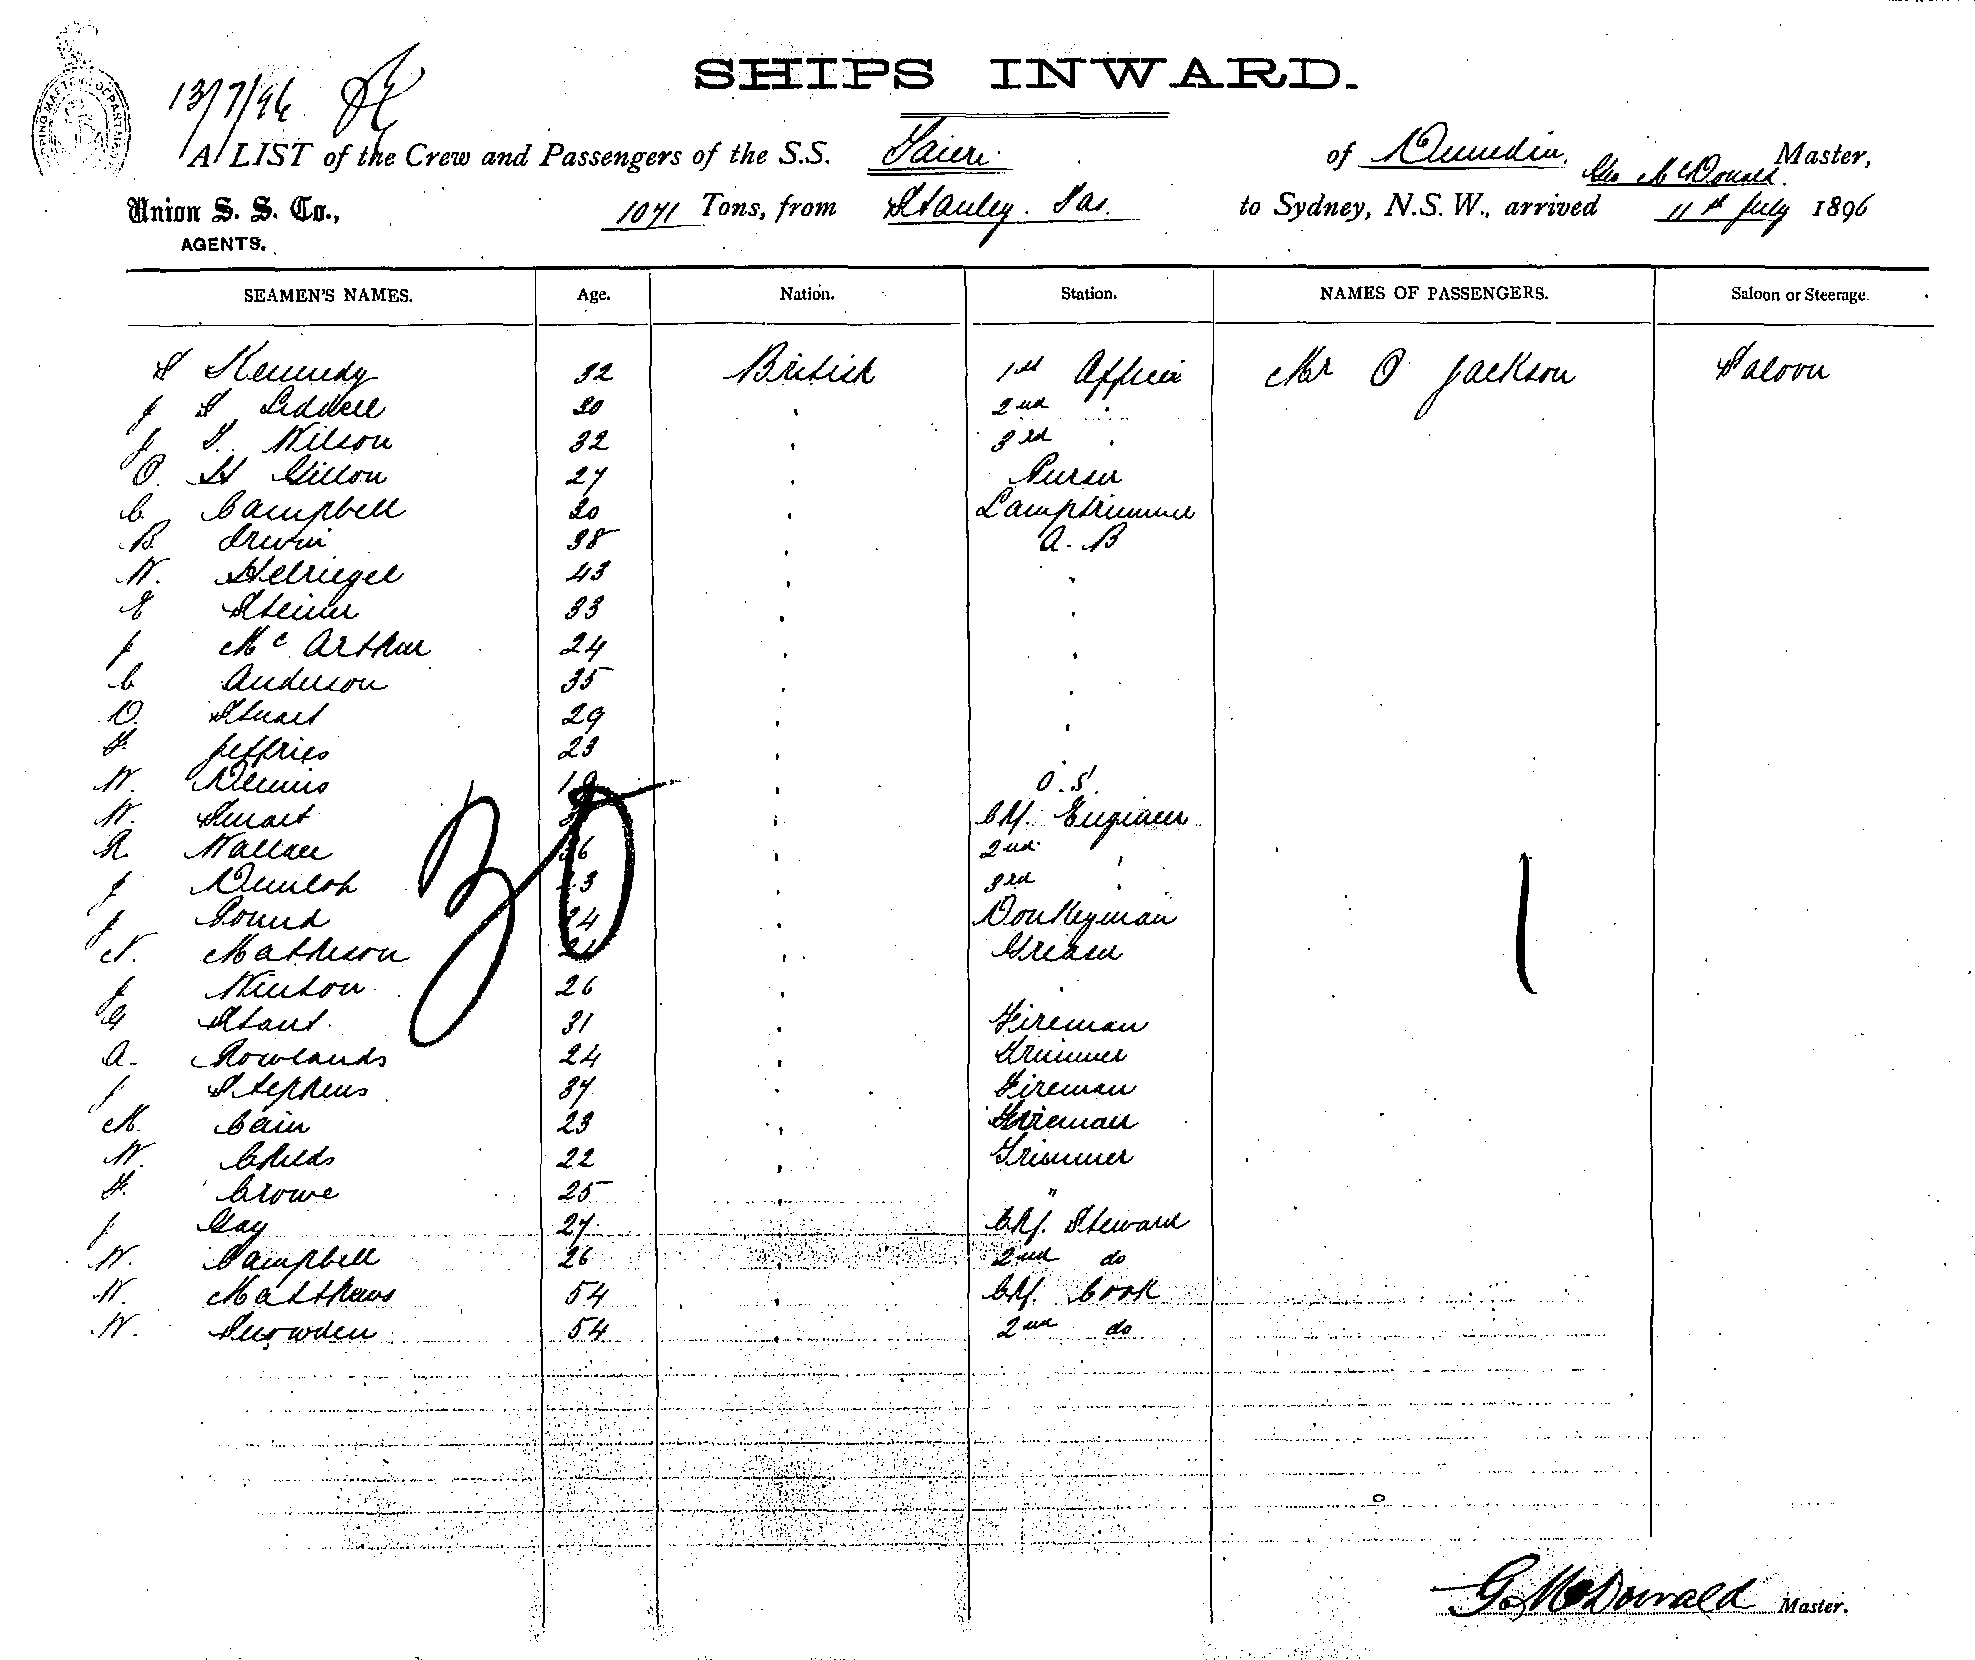 SHIPS INWARD.
13/7/96
A LIST of the Crew and Passengers of the S.S. Taieri of Dunedin, Geo McDonald Master,
Union S. S. Co., 1071 Tons, from Stanley. Tas. to Sydney, N.S.W., arrived 11th July 1896
AGENTS.
SEAMEN'S NAMES. Age. Nation. Station. NAMES OF PASSENGERS. Saloon or Steerage.
Kennedy 32 British 1st Officer Mr O Jackson Saloon
J Liddell 30 " 2nd "
J Wilson 32 " 3rd "
H Gillon 27 " Purser
C Campbell 30 " Lamptrimmer
B. Irwin 38 " A. B
W. Helriegel 43 " "
E Steiner 33 " "
J McArthur 24 " "
C Anderson 35 " "
D. Stuart 29 " "
F. Jeffries 23 " "
W. Dennis " O. S.
W. Smart " Chf. Engineer
R Wallace 36 " 2nd "
J Dunlop " 3rd "
J Pound 24 " Donkeyman
N. Mathieson " Greaser
J Winton 26 " "
G Stant. 31 " Fireman
A. Rowlands 24 " Trimmer
J Stephens 37 " Fireman
M. Cain 23 " Fireman
W. Childs 22 " Trimmer
F. Crowe 25 " "
J Gay 27 " Chf. Steward
W. Campbell 26 " 2nd do
W. Matthews 54 " Chf. Cook
W. Snowden 54 " 2nd do
30 1
G. McDonald Master.